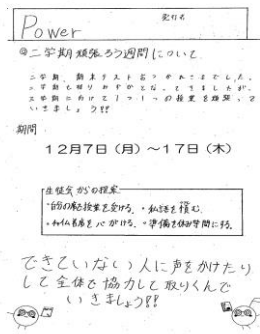 発行者
Power
二学期頑張ろう週間について
二学期、期末テストおつかれさまでした。
二学期も残りわずかとなってきましたが、
3学期にむけて1つ1つの授業を頑張って
いきましょう!!
期間
12月7日(月)~17日(木)
生徒会からの提案
・自分の席で授業を受ける。・私語を慎む。
・チャイム着席を心がける。・準備を休み時間にする。
できていない人に声をかけたり
して全体で協力して取りくんで
いきましょう!!